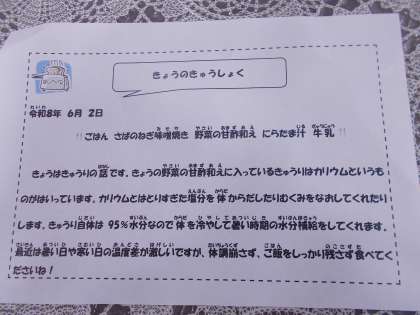 きょうのきゅうしょく
令和8年 6月 2日
!!ごはん さばのねぎ味噌焼き 野菜の甘酢和え にらたま汁 牛乳!!
きょうはきゅうりの話です。きょうの野菜の甘酢和えに入っているきゅうりはカリウムというも
のがはいっています。カリウムとはとりすぎた塩分を体からだしたりむくみをなおしてくれたり
します。きゅうり自体は95%水分なので体を冷やして暑い時期の水分補給をしてくれます。
最近は暑い日や寒い日の温度差が激しいですが、体調崩さず、ご飯をしっかり残さず食べてく
ださいね!